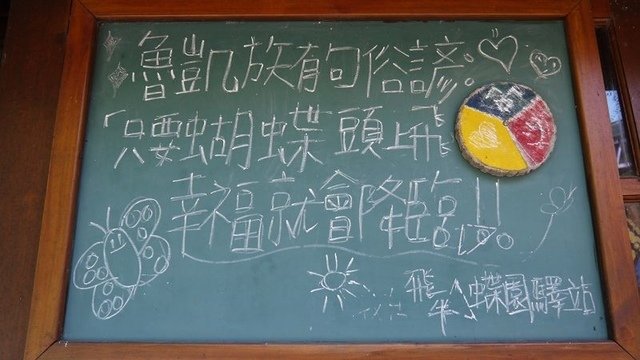 魯凱族有句俗諺:
「只要蝴蝶頭上飛
幸福就會降臨!!
蝶園驛站